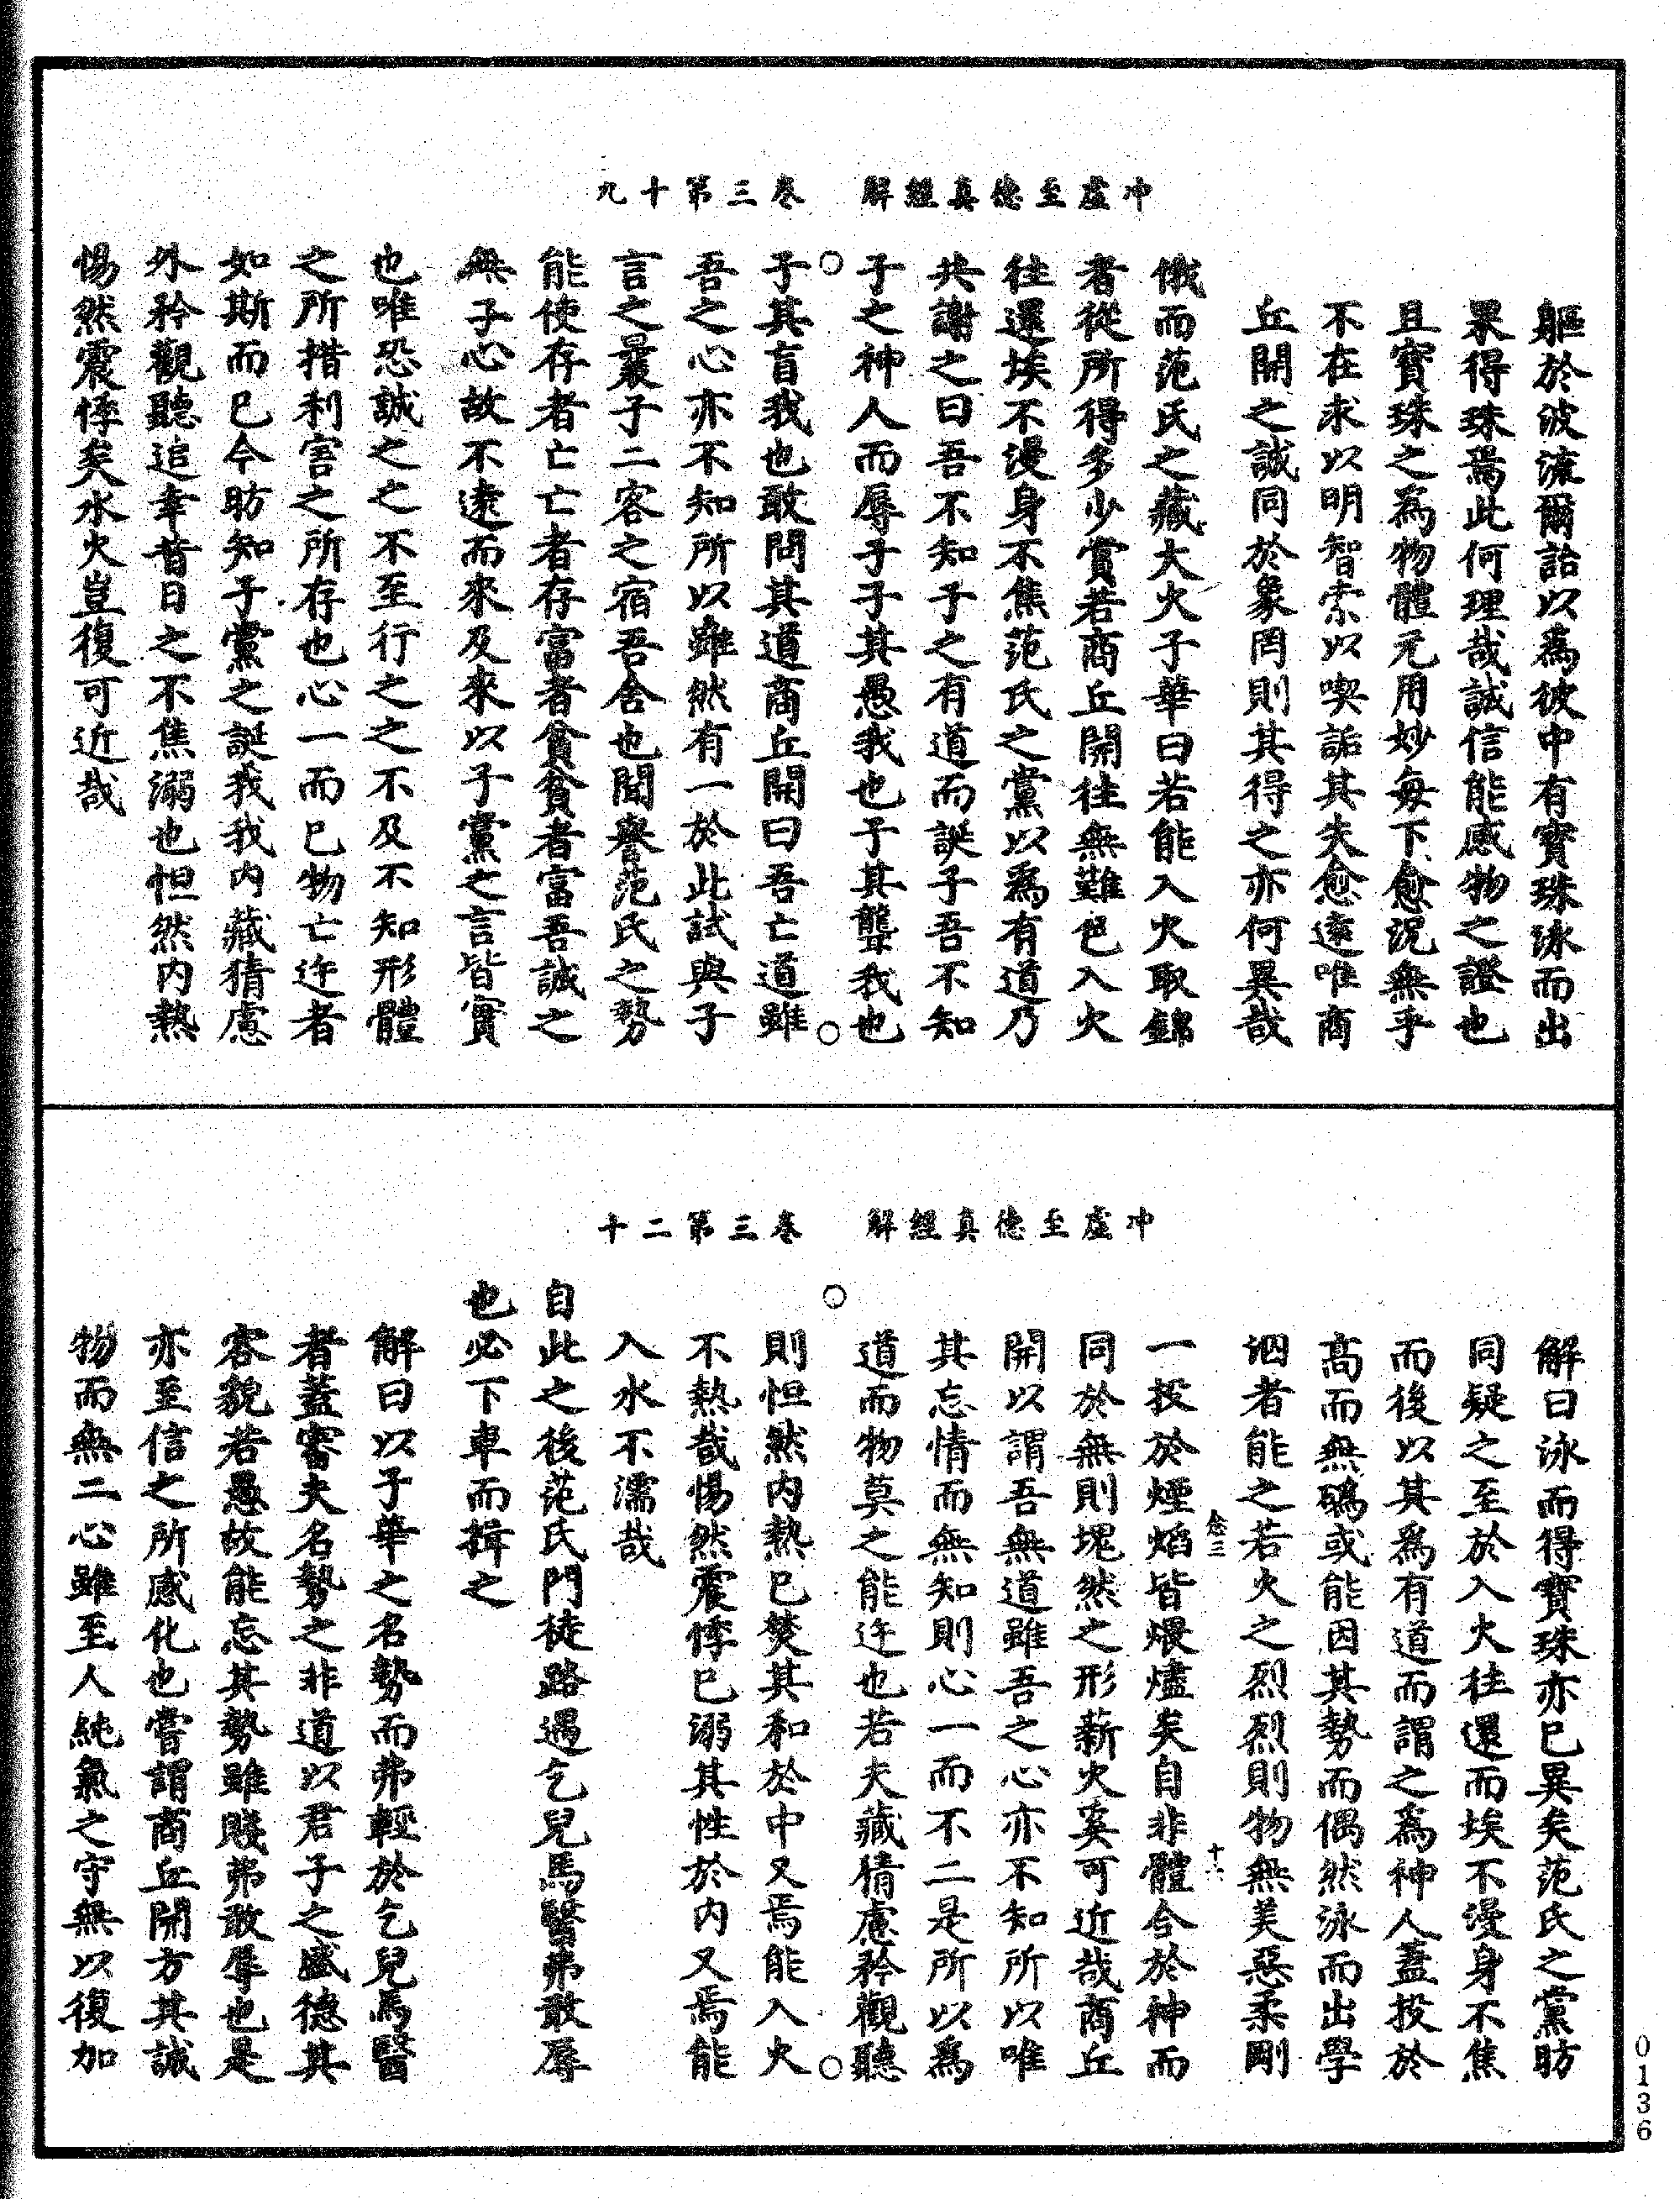 冲虛至德真經解　卷三第十九
軀於波流爾詒以爲彼中有寶珠泳而出
果得珠焉此何理哉誠信能感物之證也
且寶珠之為物體元用妙每下愈況無乎
不在求以明智索以喫詬其失愈遠唯商
丘開之誠同於象罔則其得之亦何異哉
俄而范氏之藏大火子華曰若能入火取錦
者從所得多少賞若商丘開往無難色入火
往還埃不漫身不焦范氏之黨以爲有道乃
共謝之曰吾不知子之有道而誕子吾不知
子之神人而辱子子其愚我也子其聾我也
子其盲我也敢問其道商丘開曰吾亡道雖
吾之心亦不知所以雖然有一於此試與子
言之曩子二客之宿吾舍也聞譽范氏之勢
能使存者亡亡者存富者貧貧者富吾誠之
無子心故不遠而來及來以子黨之言皆實
也唯恐誠之之不至行之之不及不知形體
之所措利害之所存也心一而已物亡迕者
如斯而已今昉知子黨之誕我我內藏猜慮
外矜觀聽追幸昔日之不焦溺也怛然內熱
惕然震悸矣水火豈復可近哉
冲虛至德真經解　卷三第二十
解曰泳而得寶珠亦已異矣范氏之黨昉
同疑之至於入火往還而埃不漫身不焦
而後以其爲有道而謂之爲神人蓋投於
高而無䃣或能因其勢而偶然泳而出學
泅者能之若火之烈烈則物無美惡柔剛
念三　十六
一投於煙焰皆煨燼矣自非體合於神而
同於無則塊然之形薪火奚可近哉商丘
開以謂吾無道雖吾之心亦不知所以唯
其忘情而無知則心一而不二是所以爲
道而物莫之能迕也若夫藏猜慮矜觀聽
則怛然內熱已焚其和於中又焉能入火
不熱哉惕然震悸已溺其性於內又焉能
入水不濡哉
自此之後范氏門徒路遇乞兒馬醫弗敢辱
也必下車而揖之
解曰以子華之名勢而弗輕於乞兒馬醫
者蓋審夫名勢之非道以君子之盛德其
容貌若愚故能忘其勢雖賤弗敢辱也是
亦至信之所感化也嘗謂商丘開方其誠
物而無二心雖至人純氣之守無以復加
0136